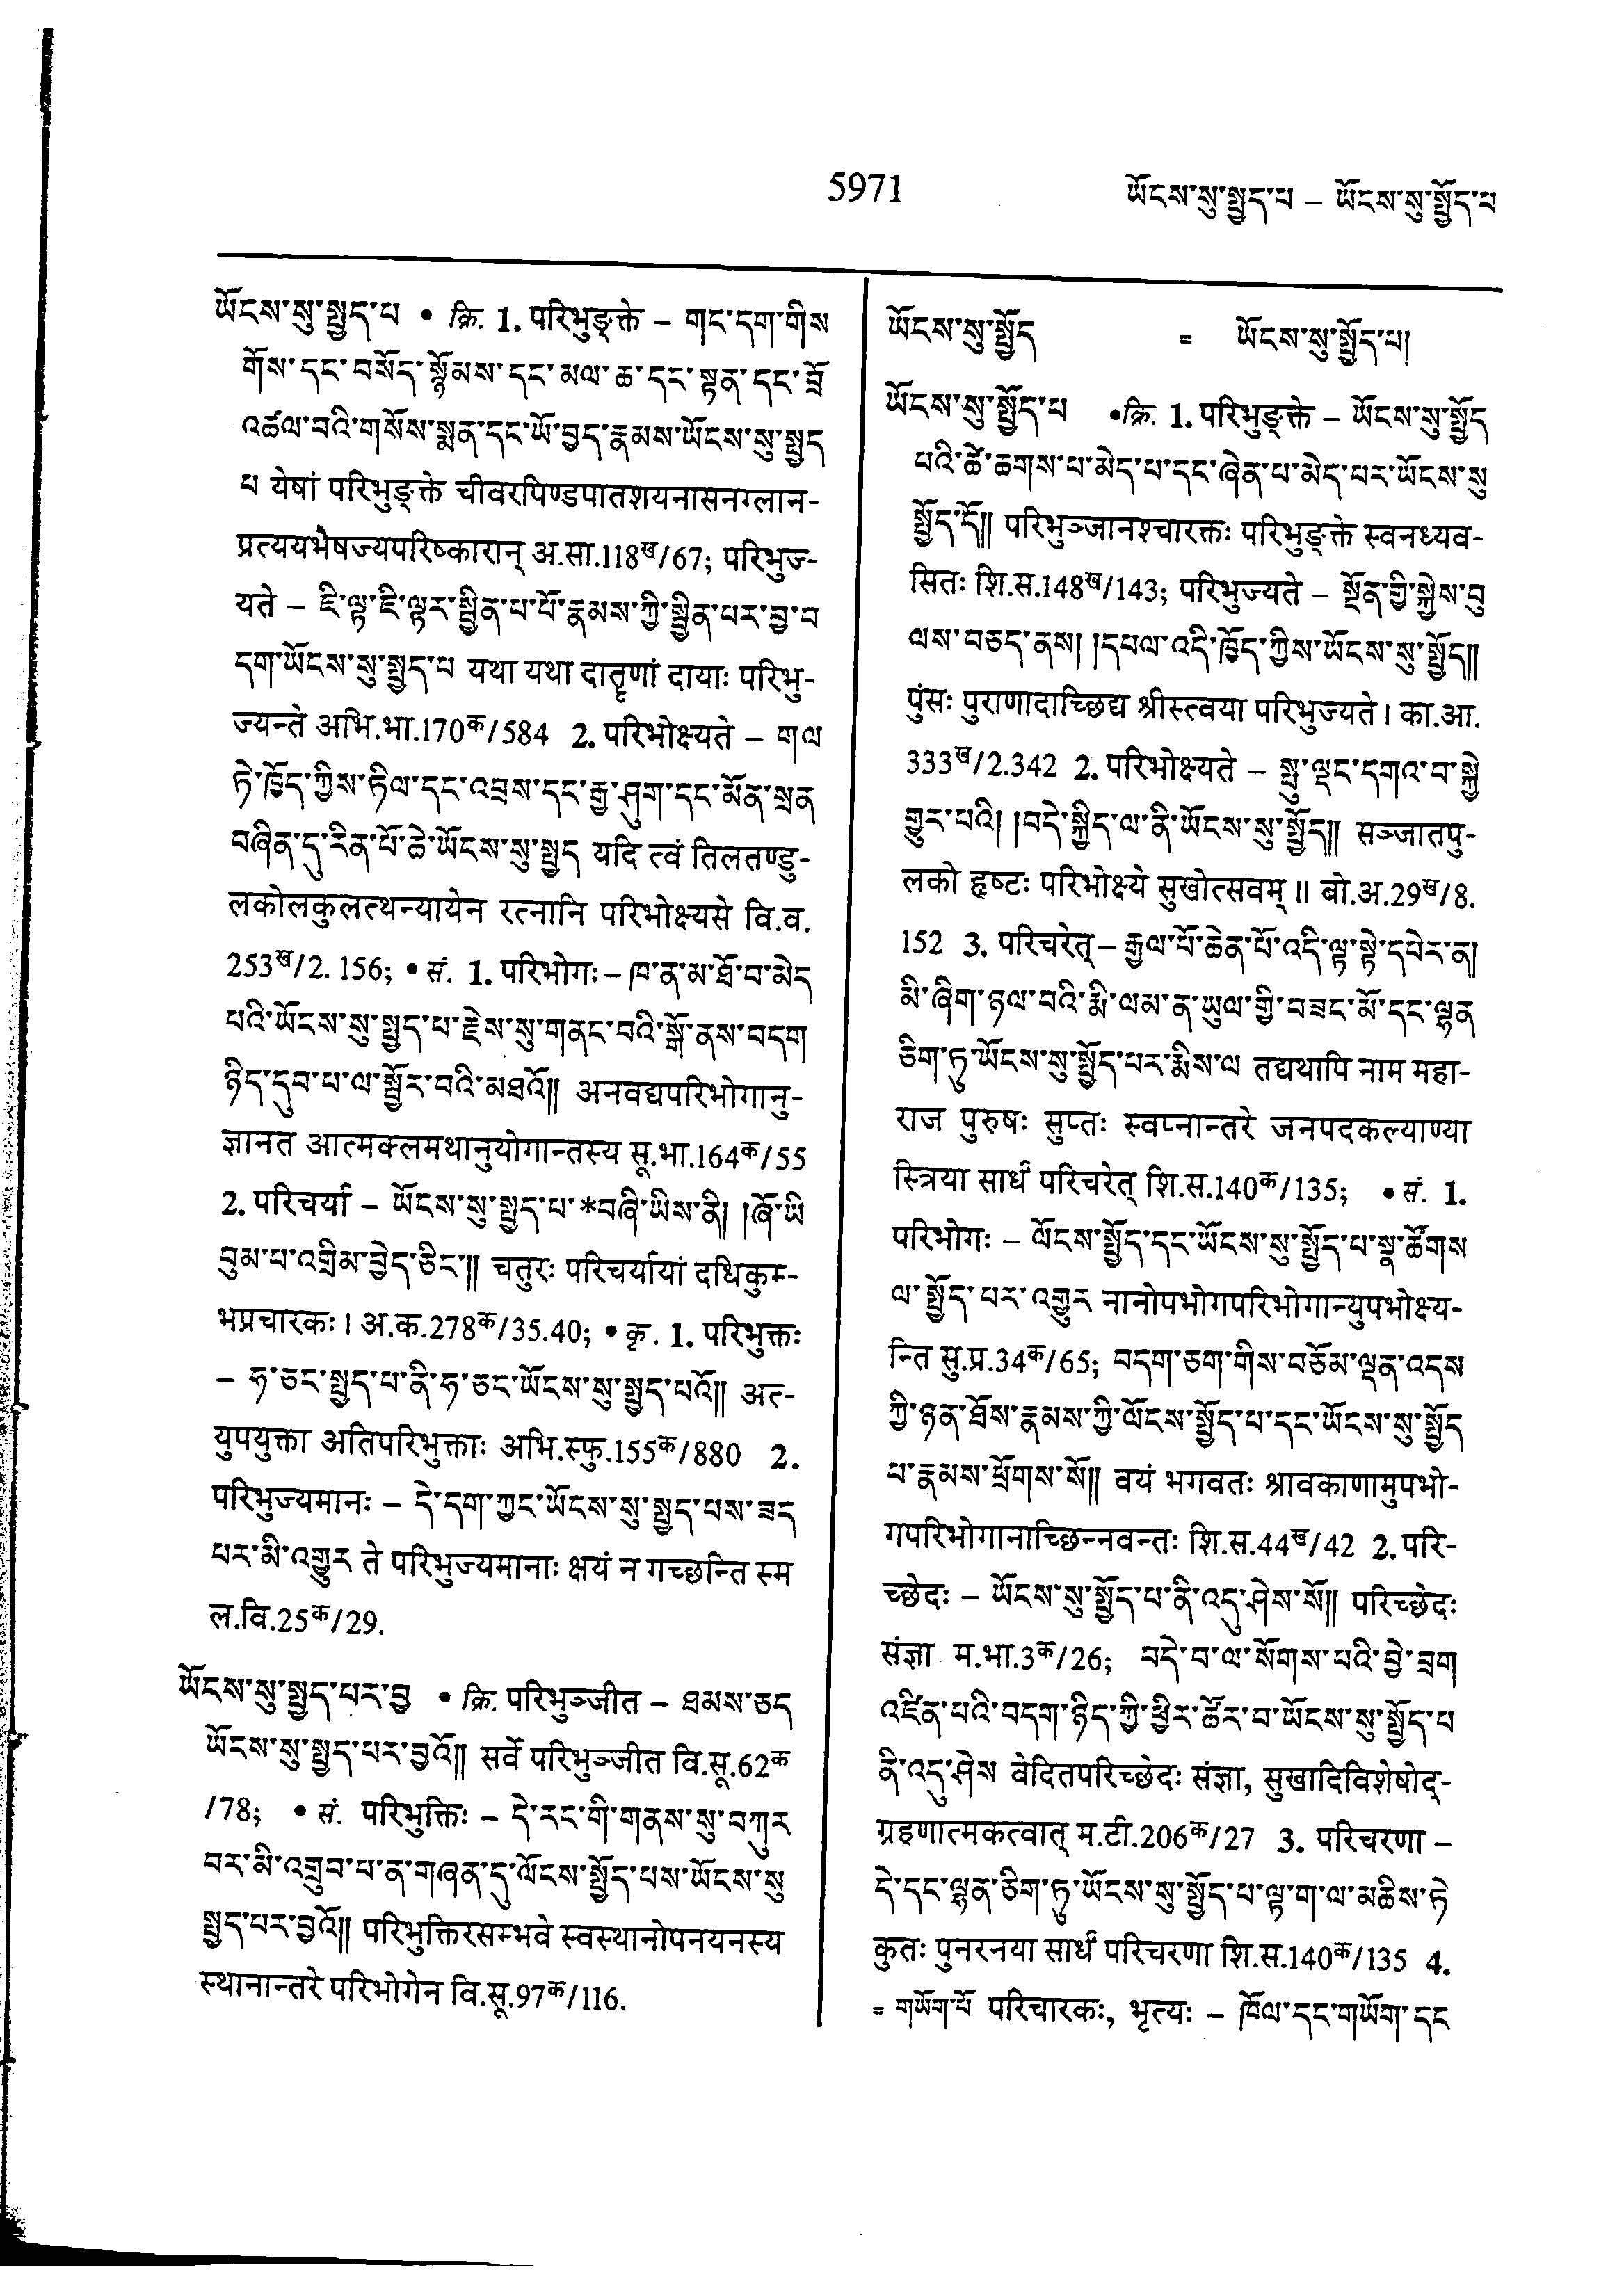 5971
ཡོངས་སུ་སྤྱད་པ – ཡོངས་སུ་སྤྱོད་པ
ཡོངས་སུ་སྤྱད་པ • क्रि. 1. परिभुङ्क्ते – གང་དག་གིས
གོས་དང་བསོད་སྙོམས་དང་མལ་ཆ་དང་སྟན་དང་བློ
འཚལ་བའི་གསོས་སྨན་དང་ཡོ་བྱད་རྣམས་ཡོངས་སུ་སྤྱད
པ येषां परिभुङ्क्ते चीवरपिण्डपातशयनासनग्लान-
प्रत्ययभैषज्यपरिष्कारान् अ.सा.118ख/67; परिभुज्-
यते – ཇི་ལྟ་ཇི་ལྟར་སྦྱིན་པ་པོ་རྣམས་ཀྱི་སྦྱིན་པར་བྱ་བ
དག་ཡོངས་སུ་སྤྱད་པ यथा यथा दातॄणां दायाः परिभु-
ज्यन्ते अभि.भा.170क/584 2. परिभोक्ष्यते – གལ
ཏེ་ཁྱོད་ཀྱིས་ཏིལ་དང་འབྲས་དང་རྒྱ་ཤུག་དང་མོན་སྲན
བཞིན་དུ་རིན་པོ་ཆེ་ཡོངས་སུ་སྤྱད यदि त्वं तिलतण्डु-
लकोलकुलत्थन्यायेन रत्नानि परिभोक्ष्यसे वि.व.
253ख/2. 156; • सं. 1. परिभोगः – ཁ་ན་མ་ཐོ་བ་མེད
པའི་ཡོངས་སུ་སྤྱད་པ་རྗེས་སུ་གནང་བའི་སྒོ་ནས་བདག
ཉིད་དུབ་པ་ལ་སྦྱོར་བའི་མཐའོ།། अनवद्यपरिभोगानु-
ज्ञानत आत्मक्लमथानुयोगान्तस्य सू.भा.164क/55
2. परिचर्या – ཡོངས་སུ་སྤྱད་པ་*བཞི་ཡིས་ནི། །ཞོ་ཡི
བུམ་པ་འགྲིམ་བྱེད་ཅིང་།། चतुरः परिचर्यायां दधिकुम्-
भप्रचारकः। अ.क.278क/35.40; • कृ. 1. परिभुक्तः
– ཧ་ཅང་སྤྱད་པ་ནི་ཧ་ཅང་ཡོངས་སུ་སྤྱད་པའོ།། अत्-
युपयुक्ता अतिपरिभुक्ताः अभि.स्फु.155क/880 2.
परिभुज्यमानः – དེ་དག་ཀྱང་ཡོངས་སུ་སྤྱད་པས་ཟད
པར་མི་འགྱུར ते परिभुज्यमानाः क्षयं न गच्छन्ति स्म
ल.वि.25क/29.
ཡོངས་སུ་སྤྱད་པར་བྱ • क्रि. परिभुञ्जीत – ཐམས་ཅད
ཡོངས་སུ་སྤྱད་པར་བྱའོ།། सर्वे परिभुञ्जीत वि.सू.62क
/78; • सं. परिभुक्तिः – དེ་རང་གི་གནས་སུ་བཀུར
བར་མི་འགྲུབ་པ་ན་གཞན་དུ་ལོངས་སྤྱོད་པས་ཡོངས་སུ
སྤྱད་པར་བྱའོ།། परिभुक्तिरसम्भवे स्वस्थानोपनयनस्य
स्थानान्तरे परिभोगेन वि.सू.97क/116.
ཡོངས་སུ་སྤྱོད = ཡོངས་སུ་སྤྱོད་པ།
ཡོངས་སུ་སྤྱོད་པ •क्रि. 1. परिभुङ्क्ते – ཡོངས་སུ་སྤྱོད
པའི་ཚེ་ཆགས་པ་མེད་པ་དང་ཞེན་པ་མེད་པར་ཡོངས་སུ
སྤྱོད་དོ།། परिभुञ्जानश्चारक्तः परिभुङ्क्ते स्वनध्यव-
सितः शि.स.148ख/143; परिभुज्यते – སྔོན་གྱི་སྐྱེས་བུ
ལས་བཅད་ནས། །དཔལ་འདི་ཁྱོད་ཀྱིས་ཡོངས་སུ་སྤྱོད།།
पुंसः पुराणादाच्छिद्य श्रीस्त्वया परिभुज्यते। का.आ.
333ख/2.342 2. परिभोक्ष्यते – སྤུ་ལྡང་དགའ་བ་སྐྱེ
གྱུར་པའི། །བདེ་སྐྱིད་ལ་ནི་ཡོངས་སུ་སྤྱོད།། सञ्जातपु-
लको हृष्टः परिभोक्ष्ये सुखोत्सवम्॥ बो.अ.29ख/8.
152 3. परिचरेत् – རྒྱལ་པོ་ཆེན་པོ་འདི་ལྟ་སྟེ་དཔེར་ན།
མི་ཞིག་ཉལ་བའི་རྨི་ལམ་ན་ཡུལ་གྱི་བཟང་མོ་དང་ལྷན
ཅིག་ཏུ་ཡོངས་སུ་སྤྱོད་པར་རྨིས་ལ तद्यथापि नाम महा-
राज पुरुषः सुप्तः स्वप्नान्तरे जनपदकल्याण्या
स्त्रिया सार्धं परिचरेत् शि.स.140क/135; • सं. 1.
परिभोगः – ལོངས་སྤྱོད་དང་ཡོངས་སུ་སྤྱོད་པ་སྣ་ཚོགས
ལ་སྤྱོད་པར་འགྱུར नानोपभोगपरिभोगान्युपभोक्ष्य-
न्ति सु.प्र.34क/65; བདག་ཅག་གིས་བཅོམ་ལྡན་འདས
ཀྱི་ཉན་ཐོས་རྣམས་ཀྱི་ལོངས་སྤྱོད་པ་དང་ཡོངས་སུ་སྤྱོད
པ་རྣམས་ཕྲོགས་སོ།། वयं भगवतः श्रावकाणामुपभो-
गपरिभोगानाच्छिन्नवन्तः शि.स.44ख/42 2. परि-
च्छेदः – ཡོངས་སུ་སྤྱོད་པ་ནི་འདུ་ཤེས་སོ།། परिच्छेदः
संज्ञा म.भा.3क/26; བདེ་བ་ལ་སོགས་པའི་བྱེ་བྲག
འཛིན་པའི་བདག་ཉིད་ཀྱི་ཕྱིར་ཚོར་བ་ཡོངས་སུ་སྤྱོད་པ
ནི་འདུ་ཤེས वेदितपरिच्छेदः संज्ञा, सुखादिविशेषोद्-
ग्रहणात्मकत्वात् म.टी.206क/27 3. परिचरणा –
དེ་དང་ལྷན་ཅིག་ཏུ་ཡོངས་སུ་སྤྱོད་པ་ལྟ་ག་ལ་མཆིས་ཏེ
कुतः पुनरनया सार्धं परिचरणा शि.स.140क/135 4.
= གཡོག་པོ परिचारकः, भृत्यः – ཁོལ་དང་གཡོག་དང